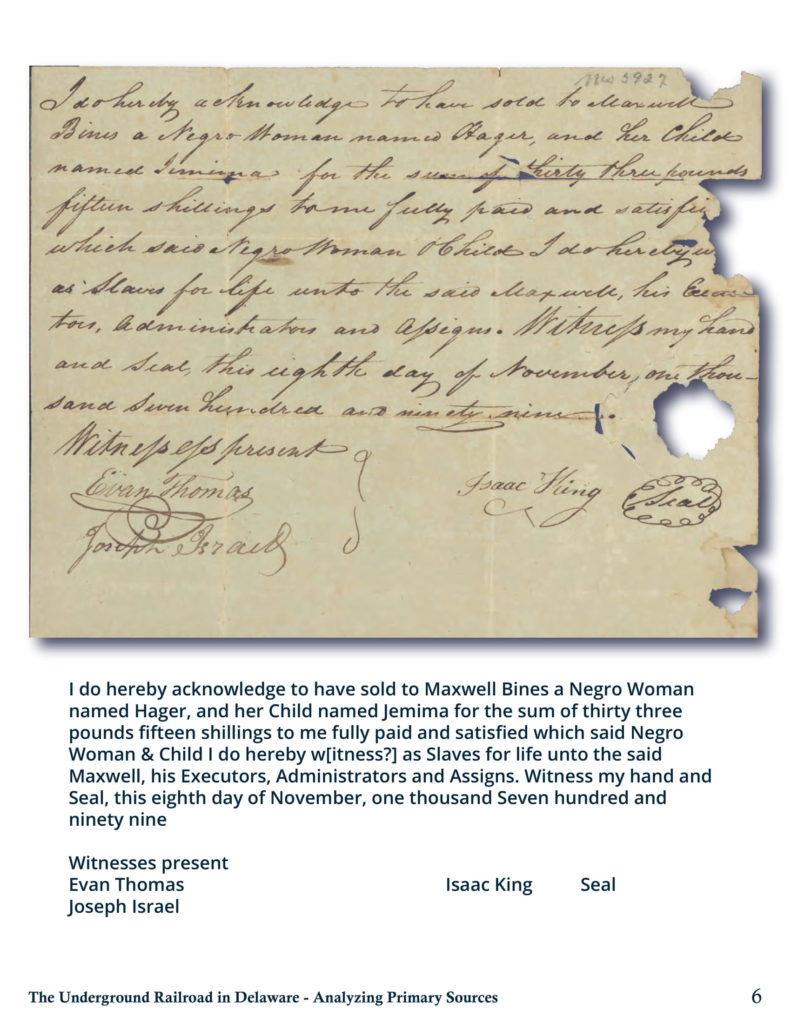 Mss 3927
I do hereby acknowledge to have sold to Maxwell
Bines a Negro Woman named Hager, and her Child
named Jemima for the sum of thirty three pounds
fifteen shillings to me fully paid and satisfi
which said Negro Woman & Child I do hereby w
as Slaves for life unto the said Maxwell, his Execu-
tors, Administrators and Assigns. Witness my hand
and Seal, this eighth day of November, one thou-
sand Seven hundred and ninety nine.
Witnesses present
Evan Thomas
Joseph Israel
Isaac King Seal
I do hereby acknowledge to have sold to Maxwell Bines a Negro Woman
named Hager, and her Child named Jemima for the sum of thirty three
pounds fifteen shillings to me fully paid and satisfied which said Negro
Woman & Child I do hereby w[itness?] as Slaves for life unto the said
Maxwell, his Executors, Administrators and Assigns. Witness my hand and
Seal, this eighth day of November, one thousand Seven hundred and
ninety nine
Witnesses present
Evan Thomas Isaac King Seal
Joseph Israel
The Underground Railroad in Delaware - Analyzing Primary Sources 6